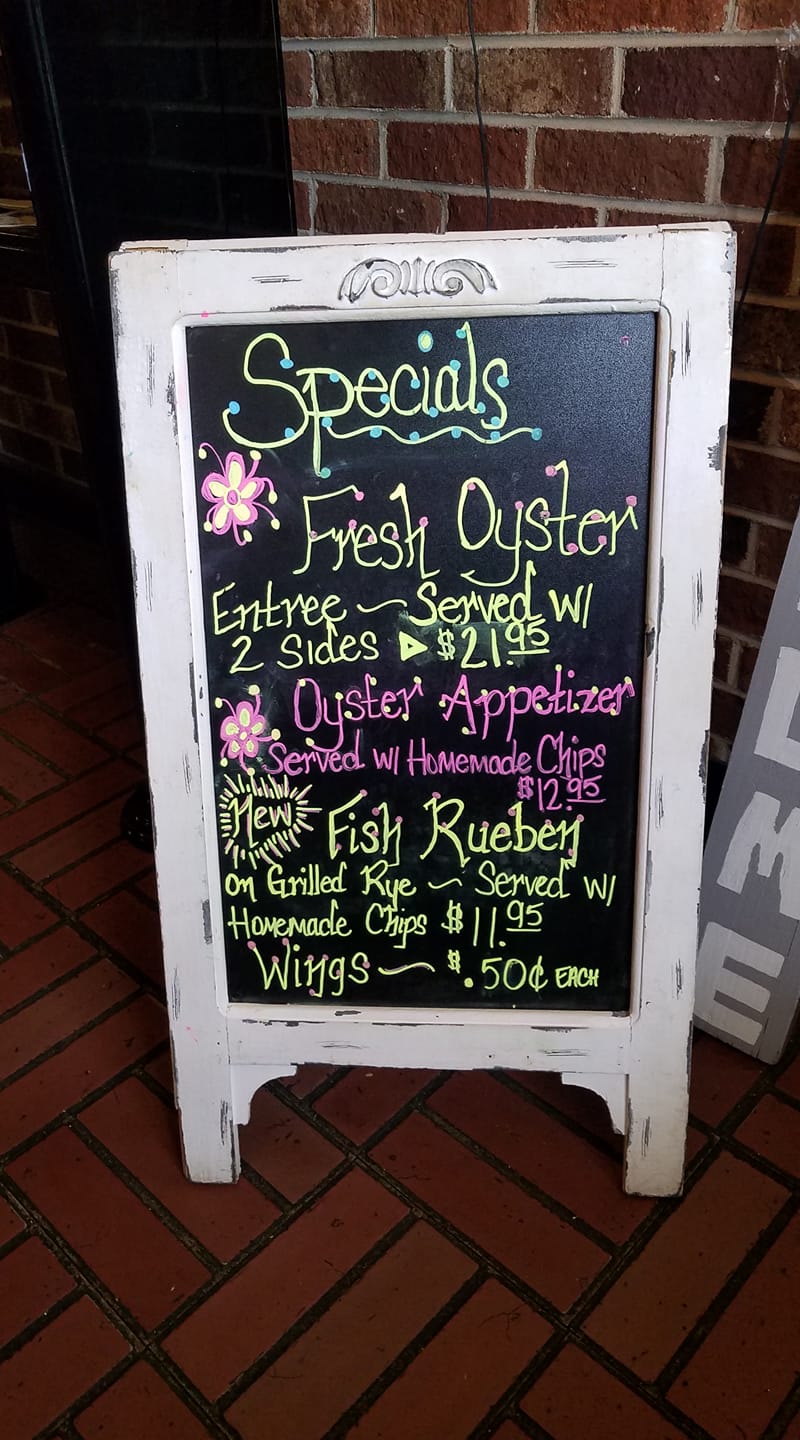 Specials
Fresh Oyster
Entree ~ Served w/
2 Sides ▷ $21.95
Oyster Appetizer
Served w/ Homemade Chips
$12.95
New Fish Rueben
on Grilled Rye ~ Served w/
Homemade Chips $11.95
Wings ~ $.50¢ EACH